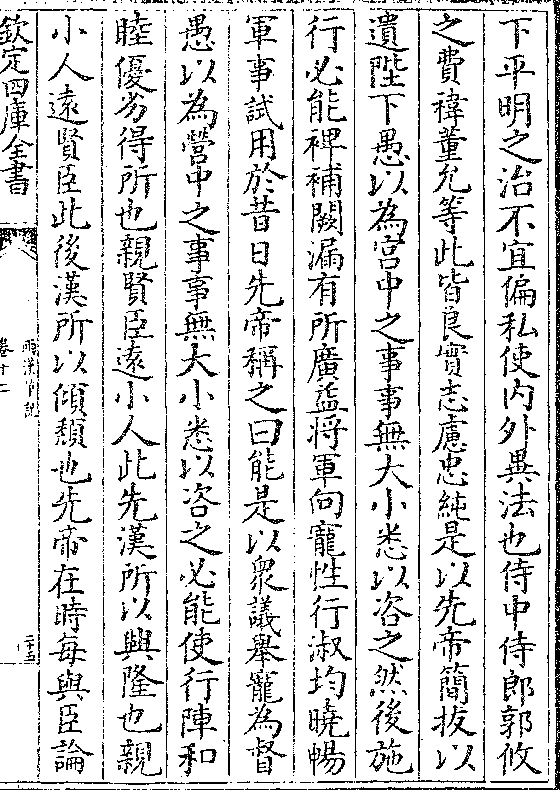 下平明之治不宜偏私使内外異法也侍中侍郎郭攸
之費禕董允等此皆良實志慮忠純是以先帝簡拔以
遺陛下愚以為宮中之事事無大小悉以咨之然後施
行必能裨補闕漏有所廣益将軍向寵性行淑均曉暢
軍事試用於昔日先帝稱之曰能是以衆議舉寵為督
愚以為營中之事事無大小悉以咨之必能使行陣和
睦優劣得所也親賢臣遠小人此先漢所以興隆也親
小人遠賢臣此後漢所以傾頹也先帝在時每與臣論
欽定四庫全書
卷十二
二十五